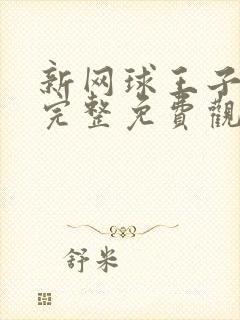 新网球王子
完整免費觀
舒米